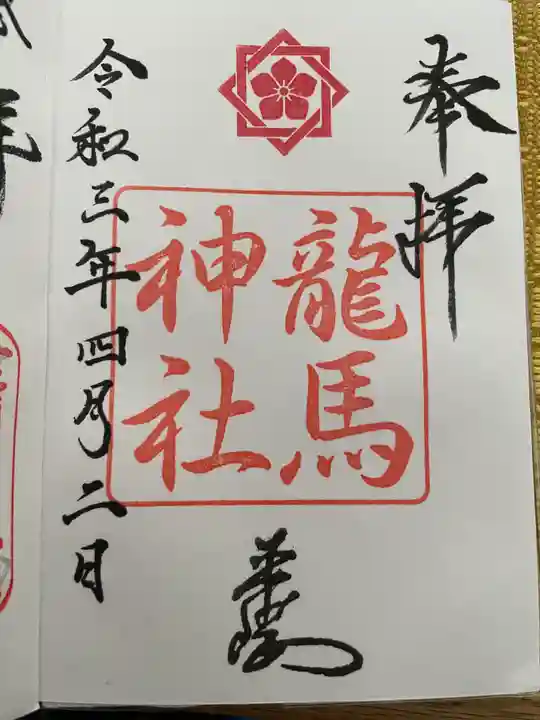 奉拝
龍馬
神社
令和三年四月二日